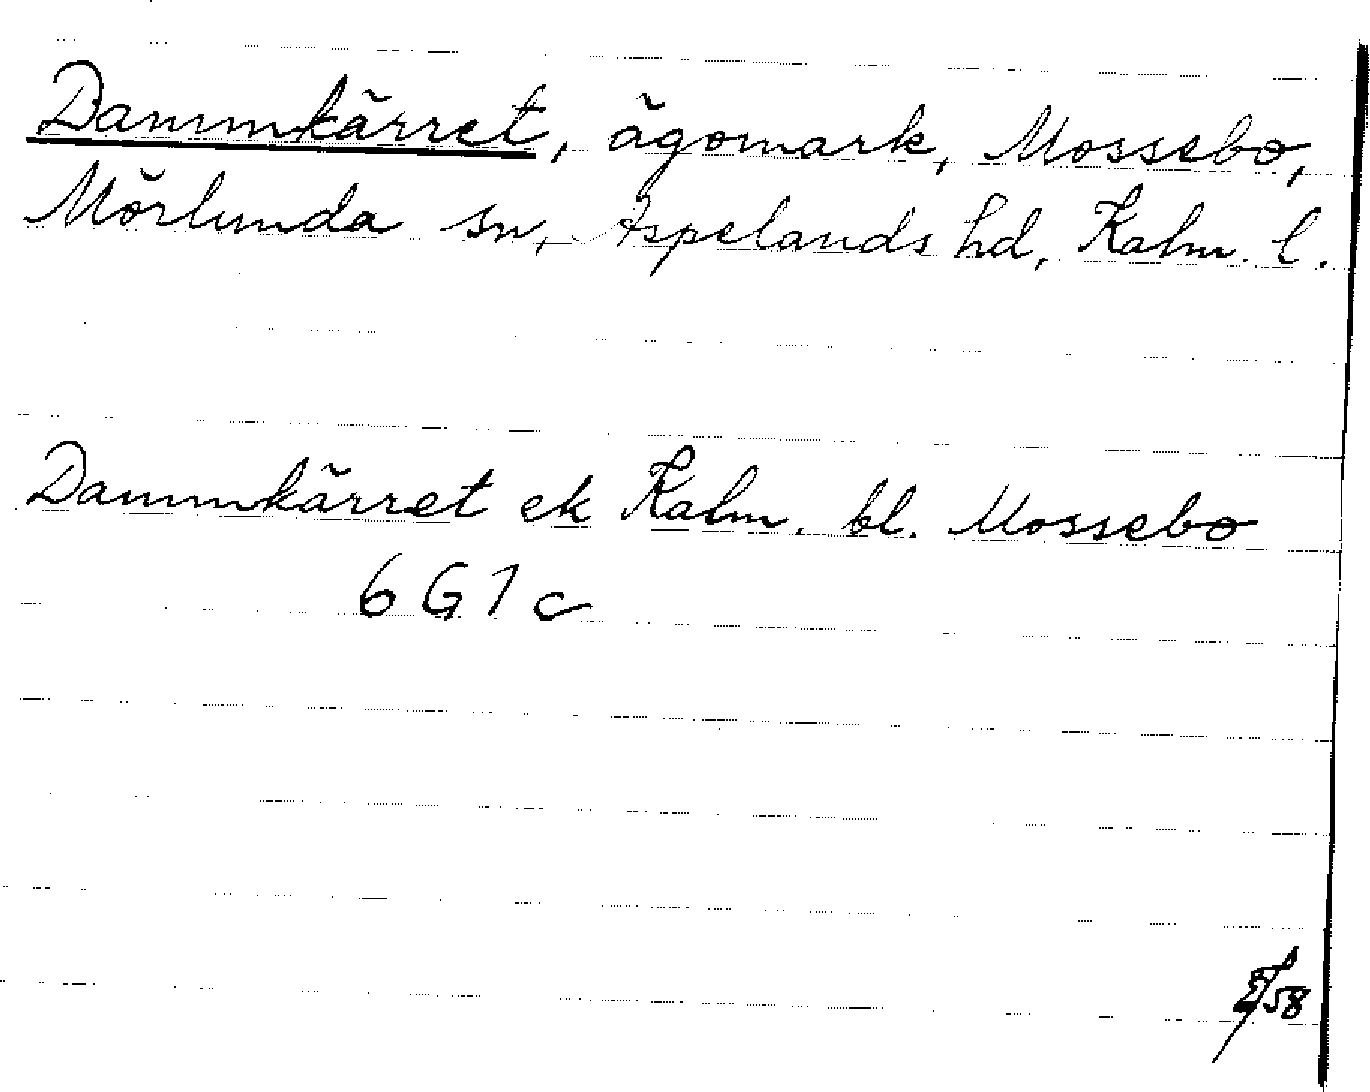 Dammkärret, ägomark, Mossebo,
Mörlunda sn, Aspelands hd, Kalm. l.
Dammkärret ek Kalm. bl. Mossebo
6 G 1 c
58